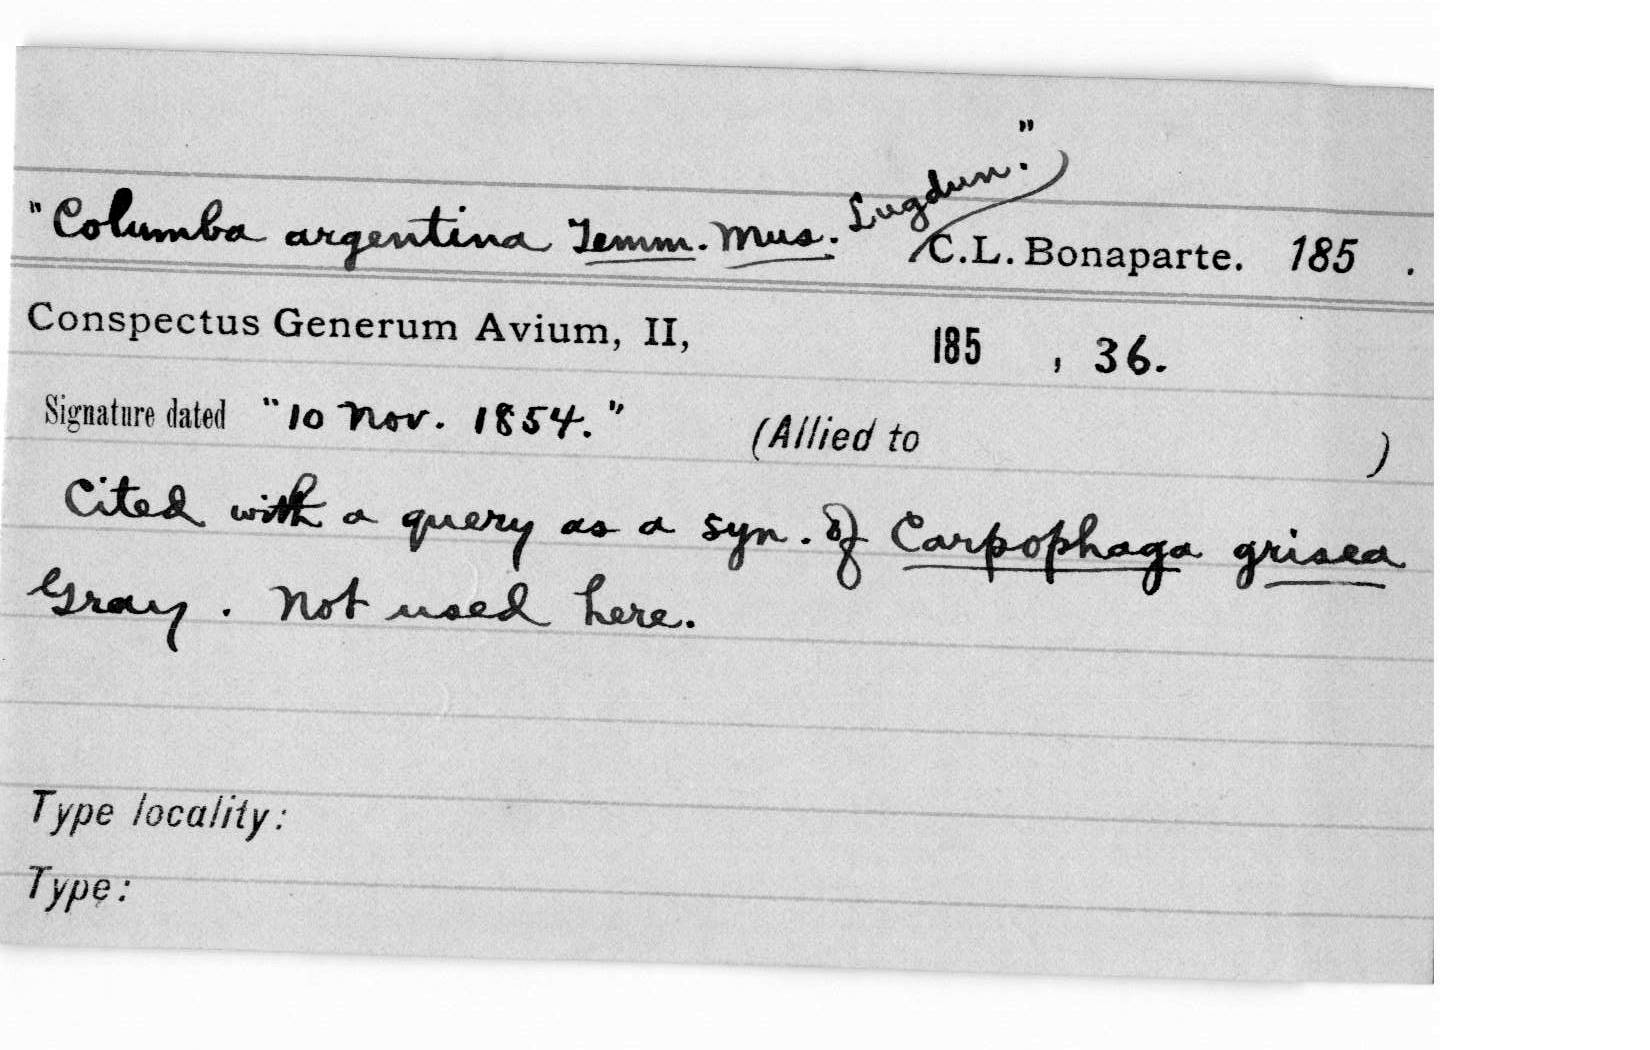 "Columba argentina Temm. Mus. Lugdun." C.L. Bonaparte. 185 .
Conspectus Generum Avium, II, 185 , 36.
Signature dated "10 Nov. 1854." (Allied to )
Cited with a query as a syn. of Carpophaga grisea
Gray. Not used here.
Type locality:
Type: